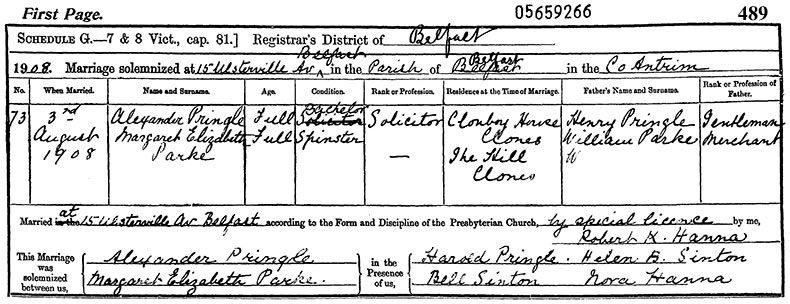 First Page. 05659266 489
SCHEDULE G.—7 & 8 Vict., cap. 81.] Registrar's District of Belfast
Belfast Belfast
1908. Marriage solemnized at 15 Ulsterville Av in the Parish of Belfast in the Co Antrim
No. When Married. Name and Surname. Age. Condition. Rank or Profession. Residence at the Time of Marriage. Father's Name and Surname. Rank or Profession of Father.
73 3rd August 1908
Alexander Pringle Full Bachelor Solicitor Solicitor Clonboy House Clones Henry Pringle Gentleman
Margaret Elizabeth Parke Full Spinster — The Hill Clones William Parke Merchant
W
Married in the at 15 Ulsterville Av Belfast according to the Form and Discipline of the Presbyterian Church, by special licence by me,
Robert K. Hanna
This Marriage was solemnized between us, Alexander Pringle in the Presence of us, Harold Pringle. Helen B. Sinton
Margaret Elizabeth Parke. Bell Sinton Nora Hanna